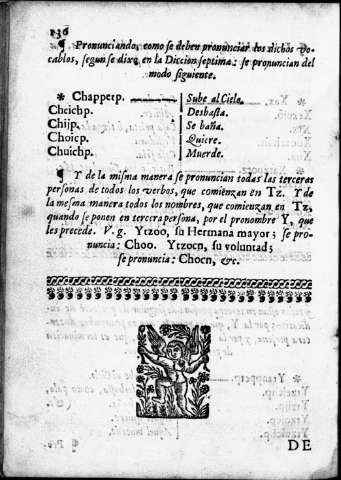 136
¶ Pronunciando, como se deben pronunciar los dichos vo-
cablos, segun se dixo en la Diccion septima: se pronuncian del
modo siguiente.
* Chapperp. Sube al Cielo.
Cheichp. Desbasta.
Chijp. Se baña.
Choicp. Quiere.
Chuichp. Muerde.
¶ Y de la misma manera se pronuncian todas las terceras
personas de todos los verbos, que comienzan en Tz. Y de
la mesma manera todos los nombres, que comienzan en Tz,
quando se ponen en tercera persona, por el pronombre Y, que
les precede. V. g. Ytzoo, su Hermana mayor; se pro-
nuncia: Choo. Ytzocn, su voluntad;
se pronuncia: Chocn, &c.
DE